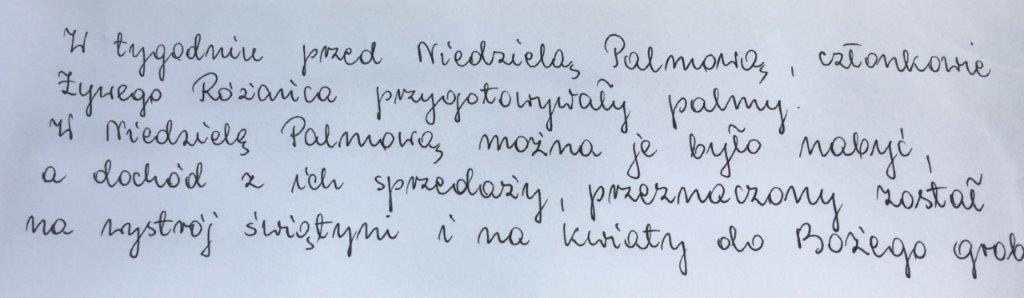 W tygodniu przed Niedzielą Palmową, członkowie
Żywego Różańca przygotowywały palmy.
W Niedzielę Palmową można je było nabyć,
a dochód z ich sprzedaży, przeznaczony został
na wystrój świątyni i na kwiaty do Bożego grob